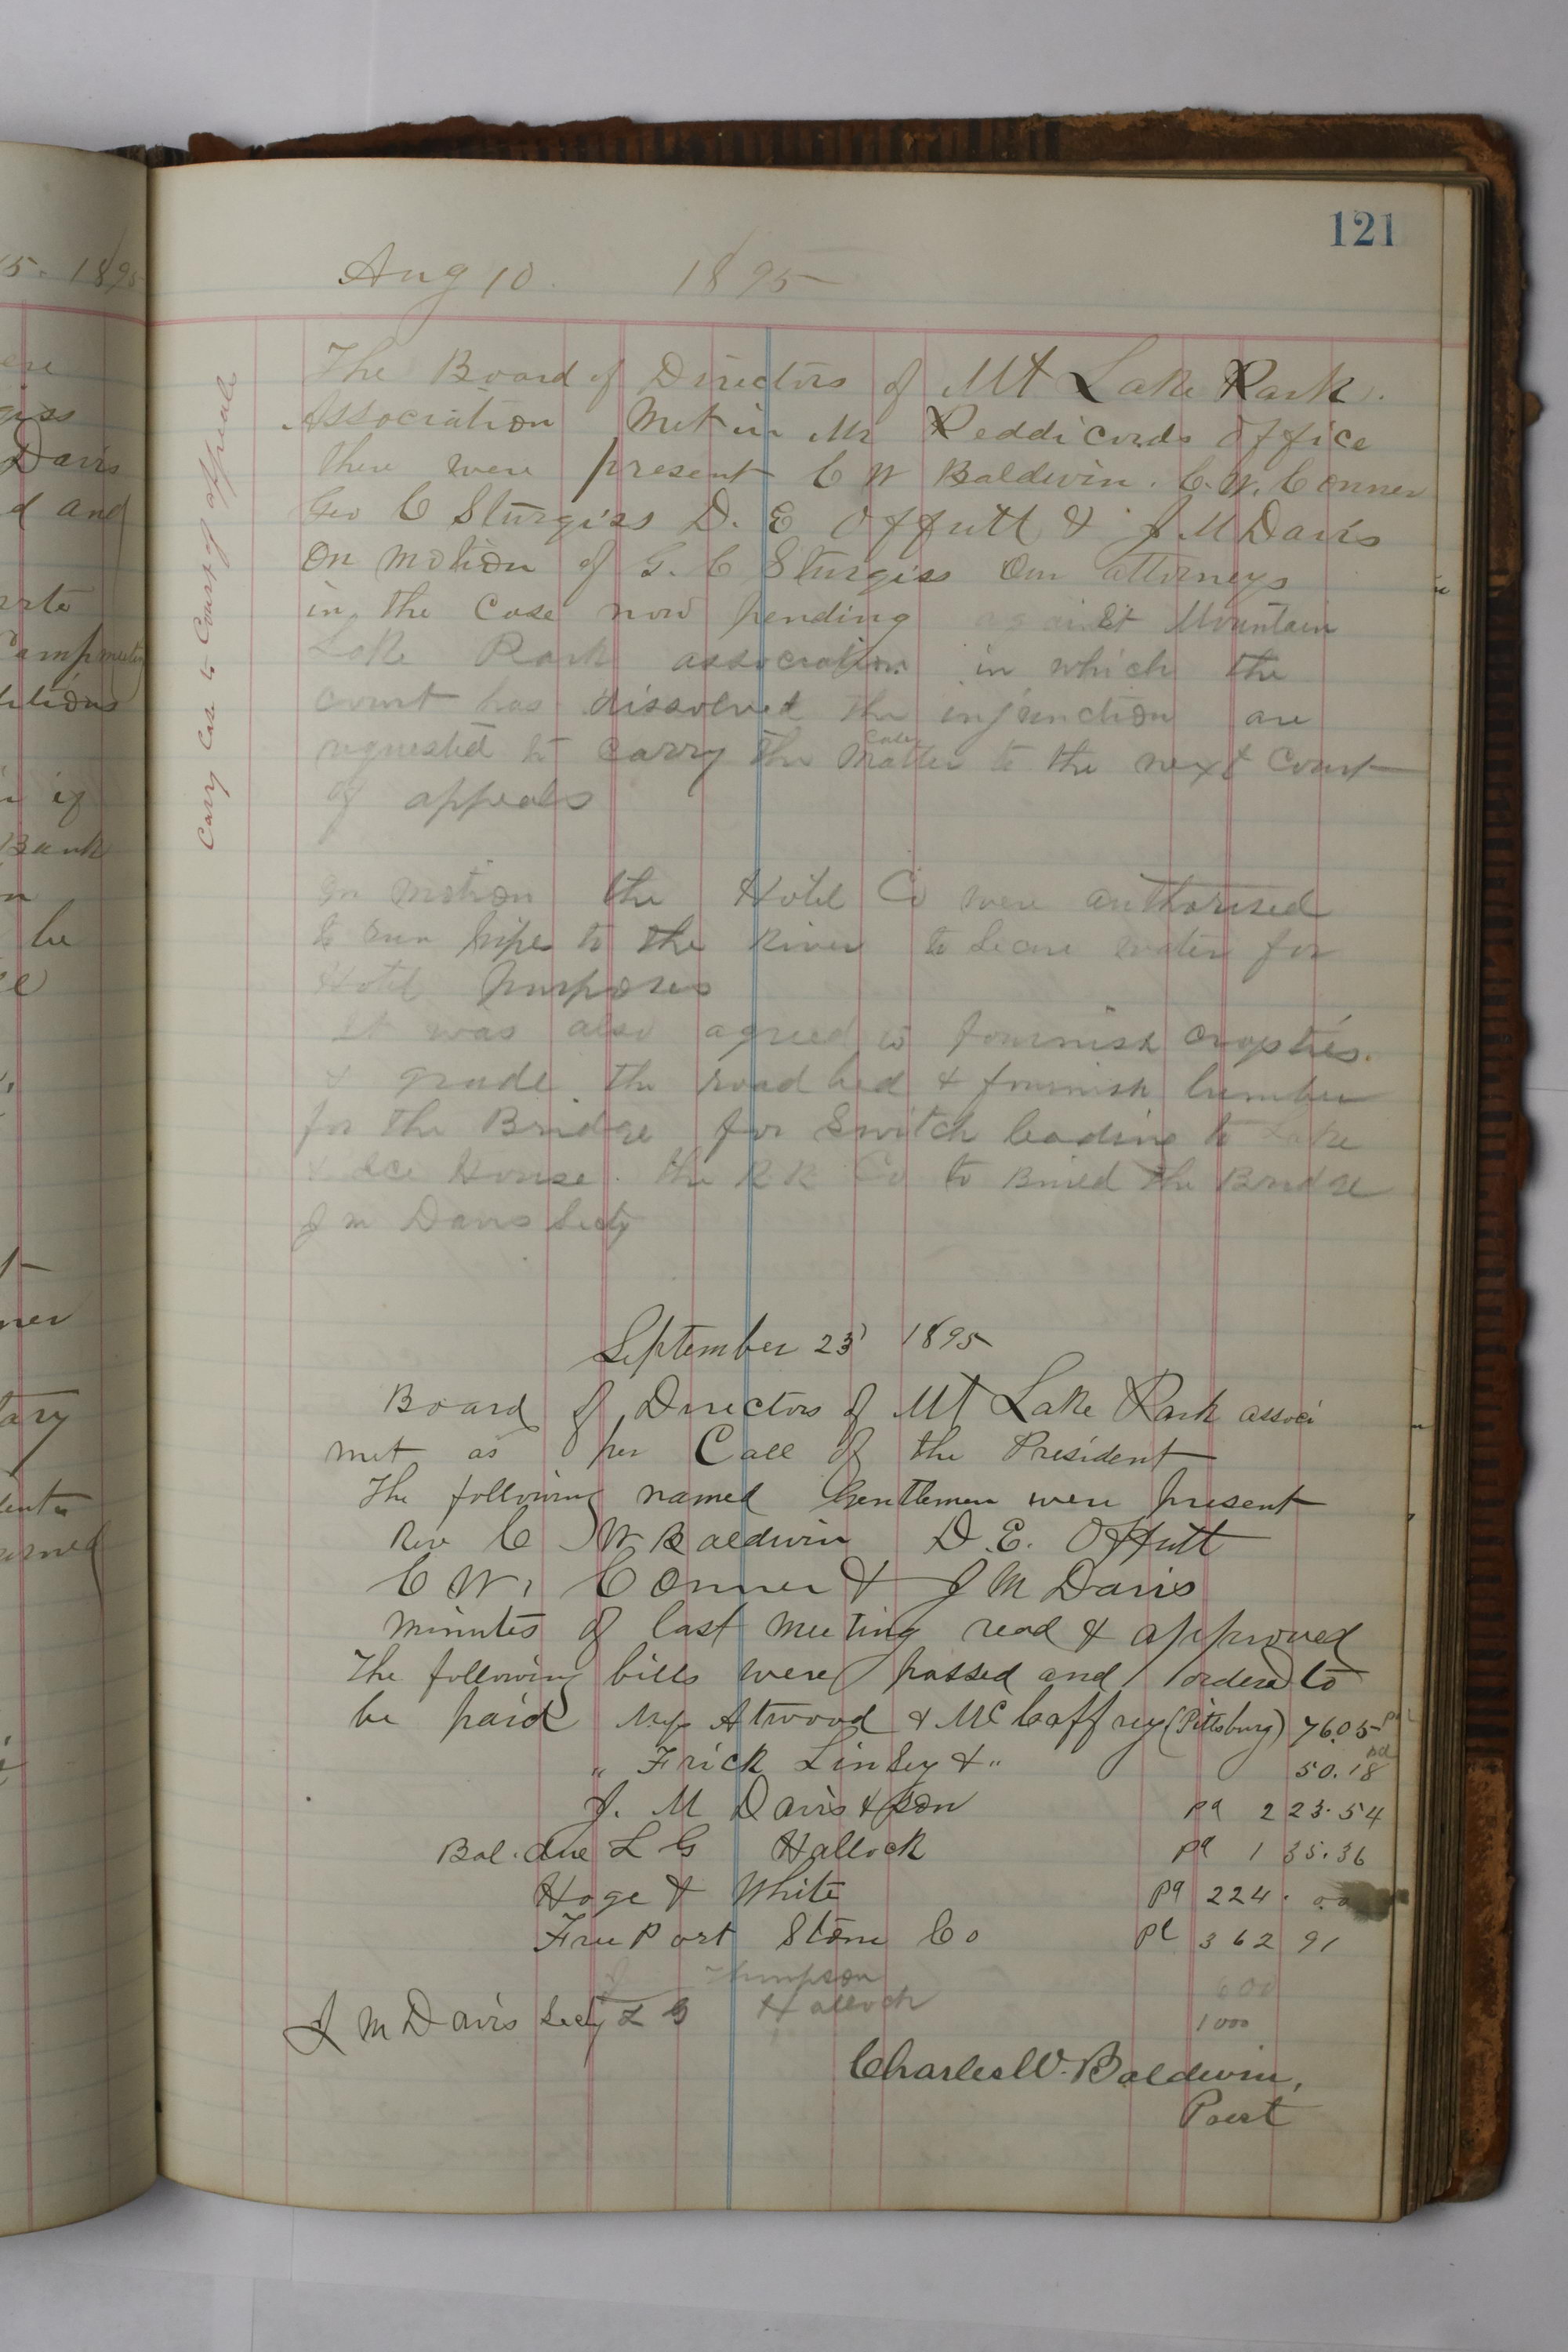 121
Aug 10. 1895
Carry Case to Court of Appeals
The Board of Directors of Mt Lake Park.
Association Met in Mr Reddicords office
there were present C W Baldwin. C. W. Conner
Geo C Sturgiss D. E Offutt & J. M Davis
On Motion of G. C Sturgiss Our attorneys
in the Case now pending against Mountain
Lake Park association in which the
court has dissolved the injunction are
requested to carry the Matter to the next Court
Case
of appeals
On Motion the Hotel Co were authorised
to run pipes to the River to Secure water for
Hotel purposes
It was also agreed to fournish crossties.
& grade the road bed & fournish lumber
for the Bridge for Switch leading to Lake
& Ice House. the R R Co to Build the Bridge
J M Davis Secty
September 23 1895
Board of Directors of Mt Lake Park associ
met as per Call of the President
The following named Gentlemen were present
Rev C W Baldwin D. E. Offutt
C W. Conner & J M Davis
minutes of last meeting read & approved
The following bills were passed and ordered to
be paid Atwood & McCaffrey (Pittsburg) 76.05 pd
" Frick Linsey & " 50.18 pd
J. M Davis & Son pd 223.54
Bal. due L G Hallock pd 135.36
Hoge & White pd 224.00
Free Port Stone Co pd 362 91
Thompson 600
J M Davis Secty L G Hallock 1000
Charles W. Baldwin,
Prest
15. 1895
Davis
d and
Bank
be